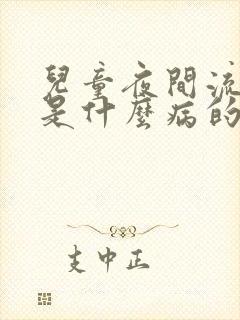 兒童夜間流
是什麼病的
支中正